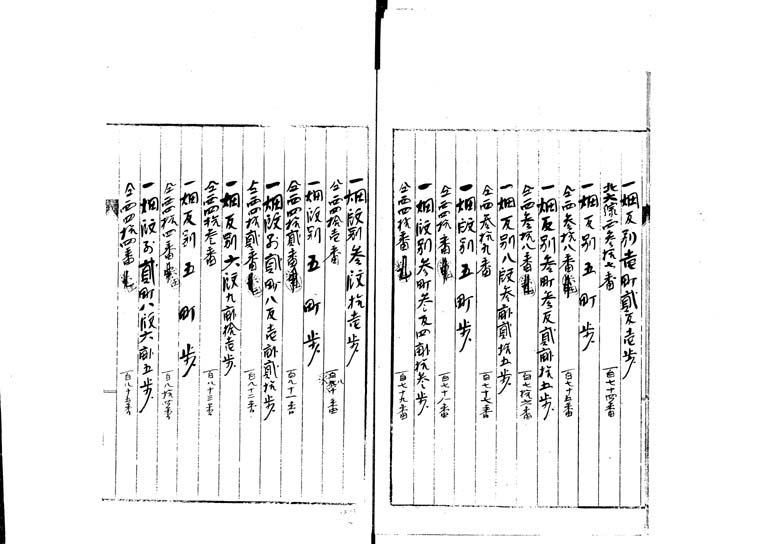 一畑反別壱町貳反壱歩
北六條西参拾七番
百七十四番
一畑反別五町歩
仝西参拾八番
百七十五番
一畑反別参町参反貳畝拾五歩
仝西参拾八番
百七拾六番
一畑反別八段参畝貳拾五歩
仝西参拾九番
百七十七番
一畑段別五町歩
仝西四拾番
百七十八番
一畑段別参町参反四畝拾参歩
仝西四拾番
百七十九番
一畑段別参段拾壱歩
仝西四拾壱番
百八十番
一畑段別五町歩
仝西四拾貳番
百八十一番
一畑段別貳町八反壱畝貳拾歩
仝西四拾貳番
百八十二番
一畑反別六段九畝拾壱歩
仝西四拾参番
百八十三番
一畑反別五町歩
仝西四拾四番
百八拾四番
一畑段別貳町八段六畝五歩
仝西四拾四番
百八十五番